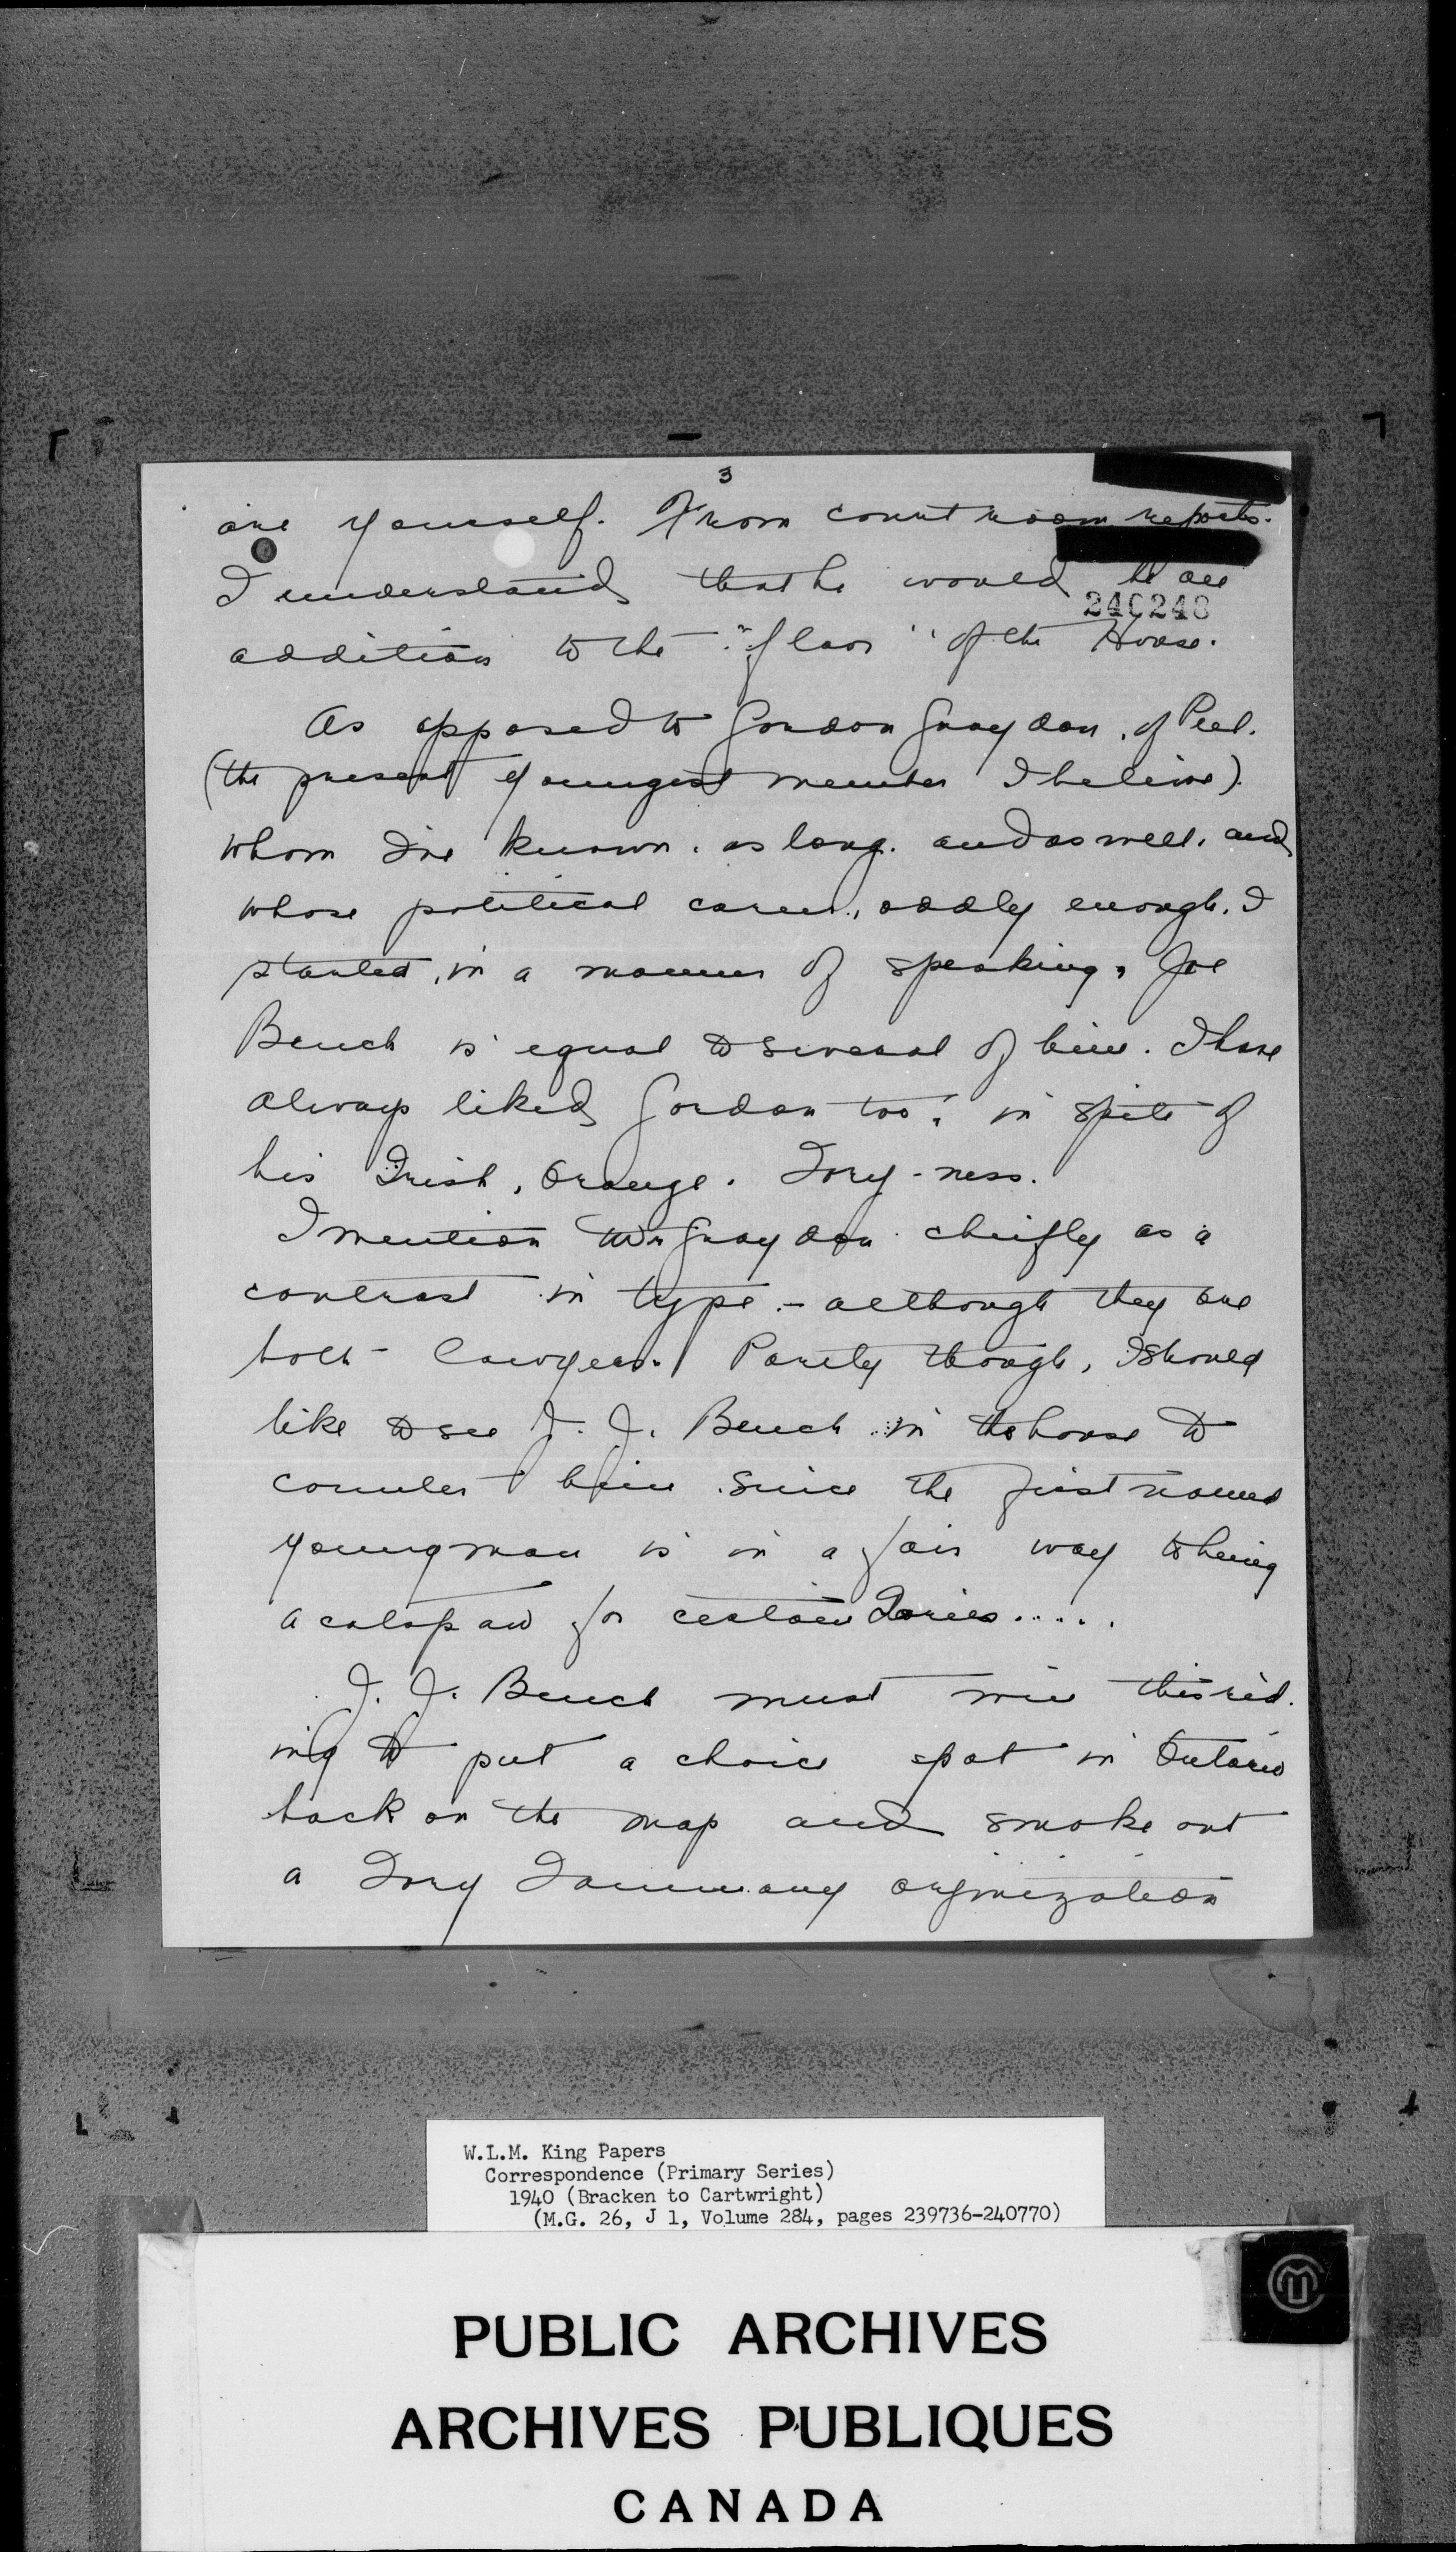 3
are yourself. From court room reports.
I understand that he would be an
240248
addition to the "floor" of the House.
As opposed to Gordon Graydon, of Peel.
(the present youngest member I believe).
whom I've known. as long. and as well. and
whose political career, oddly enough, I
started, in a manner of speaking, Joe
Bench is equal to several of him. I have
always liked Gordon too, in spite of
his Irish, Orange. Tory-ness.
I mention Mr Graydon chiefly as a
contrast in type - although they are
both lawyers. Purely though, I should
like to see J. J. Bench in the house to
counter him since the first named
young man is in a fair way to being
a catspaw for certain Tories.....
J. J. Bench must win this rid.
ing to put a choice spot in Ontario
back on the map and smoke out
a Tory Tammany orginization
W.L.M. King Papers
Correspondence (Primary Series)
1940 (Bracken to Cartwright)
(M.G. 26, J 1, Volume 284, pages 239736-240770)
PUBLIC ARCHIVES
ARCHIVES PUBLIQUES
CANADA